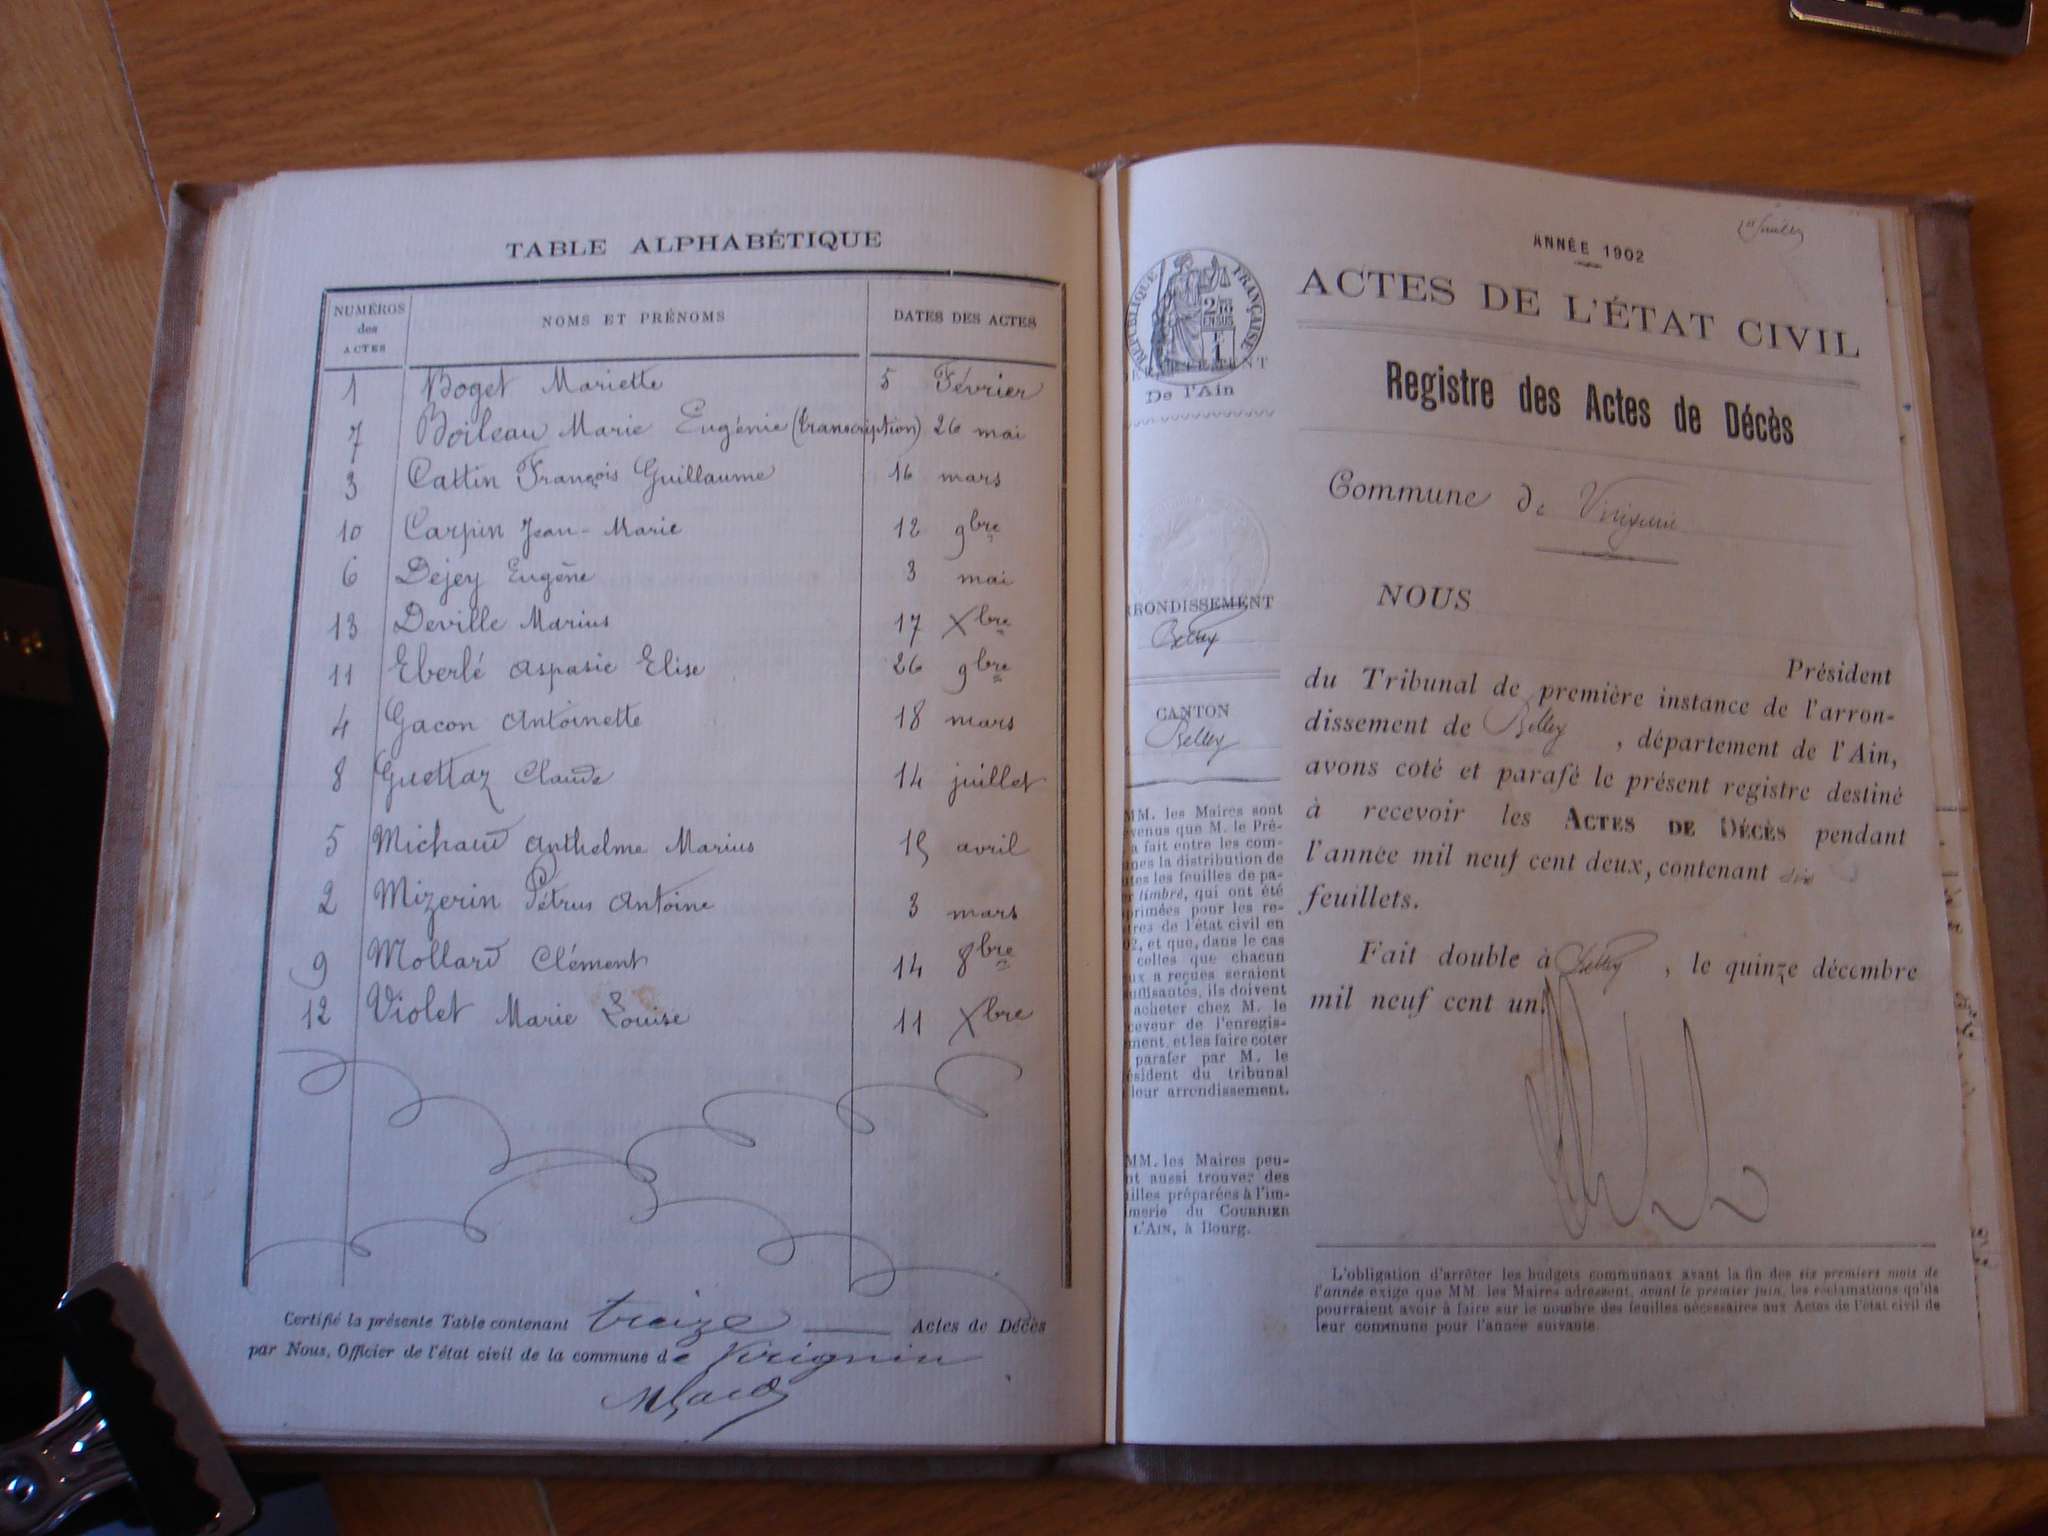 TABLE ALPHABÉTIQUE
NUMÉROS des ACTES
NOMS ET PRÉNOMS
DATES DES ACTES
1 Boget Mariette 5 Février
7 Boileau Marie Eugénie (transcription) 26 mai
3 Cattin François Guillaume 16 mars
10 Carpin Jean-Marie 12 9bre
6 Dejey Eugène 3 mai
13 Deville Marius 17 Xbre
11 Eberlé Aspasie Elise 26 9bre
4 Gacon Antoinette 18 mars
8 Guettaz Claude 14 juillet
5 Michaud Anthelme Marius 15 avril
2 Mizerin Pétrus Antoine 3 mars
9 Mollard Clément 14 8bre
12 Violet Marie Louise 11 Xbre
Certifié la présente Table contenant treize Actes de Décès
par Nous, Officier de l'état civil de la commune de Virignin
ANNÉE 1902
ACTES DE L'ÉTAT CIVIL
Registre des Actes de Décès
Commune de Virignin
NOUS
Président
du Tribunal de première instance de l'arron-
dissement de Belley, département de l'Ain,
avons coté et parafé le présent registre destiné
à recevoir les ACTES DE DÉCÈS pendant
l'année mil neuf cent deux, contenant six
feuillets.
Fait double à Belley, le quinze décembre
mil neuf cent un.
L'obligation d'arrêter les budgets communaux avant la fin des six premiers mois de
l'année exige que MM. les Maires adressent, avant le premier juin, les réclamations qu'ils
pourraient avoir à faire sur le nombre des feuilles nécessaires aux Actes de l'état civil de
leur commune pour l'année suivante.
RÉPUBLIQUE FRANÇAISE
2/10 EN SUS
F 1
De l'Ain
RRONDISSEMENT
Belley
CANTON
Belley
MM. les Maires sont
venus que M. le Pré-
a fait entre les com-
unes la distribution de
utes les feuilles de pa-
er timbré, qui ont été
primées pour les re-
tres de l'état civil en
02, et que, dans le cas
celles que chacun
ux a reçues seraient
uffisantes, ils doivent
acheter chez M. le
ceveur de l'enregis-
ment, et les faire coter
parafer par M. le
ésident du tribunal
leur arrondissement.
MM. les Maires peu-
nt aussi trouver des
uilles préparées à l'im-
merie du COURRIER
L'AIN, à Bourg.